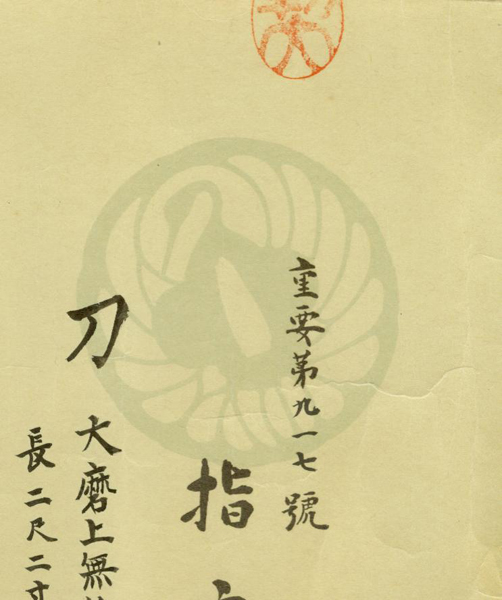 重要第九一七號
指
刀 大磨上無
長二尺二寸